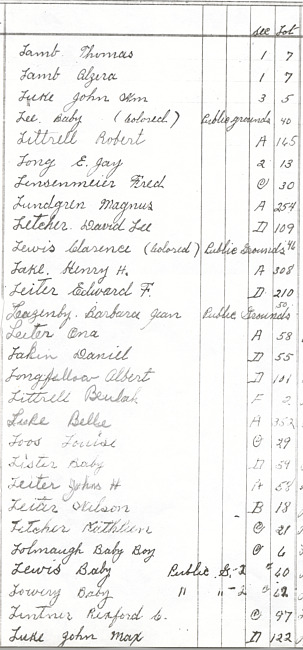 Sec Lot
Lamb Thomas 1 7
Lamb Alzira 1 7
Luke John Wm 3 5
Lee, Baby (Colored) Public grounds 40
Littrell Robert A 165
Long E. Jay 2 13
Linsenmeier Fred C 30
Lundgren Magnus A 254
Letcher. David Lee D 109
Lewis Clarence (Colored) Public Grounds 46
Lake. Henry H. A 308
Leiter Edward F. D 210
Leazenby. Barbara Jean Public Grounds 50
Leiter Ona A 58
Lakin Daniel D 55
Longfellow Albert D 101
Littrell Beulah F 2
Luke Belle A 352
Loos Louise C 29
Lister Baby D 54
Leiter John H A 58
Leiter Wilson B 18
Letcher Kathleen C 21
Lolmaugh Baby Boy C 6
Lewis Baby Public G.-2 " 40
Lowery Baby " " -2 " 42
Lintner Rexford C. C 97
Luke John Max D 122